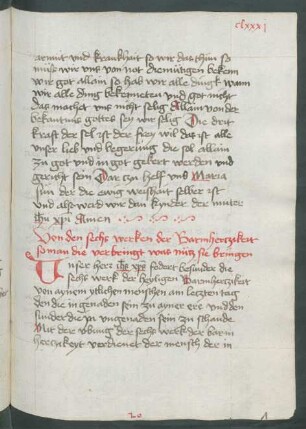 clxxxj
armut vnd krankhait so wir das thun so
müse wir vns von not diemütigen bekem
wir got allain so hab wir alle dingk wann
wir alle ding bekenneten vnd got nicht
das machet vns nicht selig Allain von der
bekantnis gottes sey wir selig Die drit
kraft der sel ist der frey wil das ist alle
vnser lieb vnd begerung die sol allain
zu got vnd in got gekert werden vnd
gericht sein Dar czu helf vns Maria
irn der die ewig weishait selber ist
vnd also werd wir vns kynder der muter
ihu xpi Amen
Von den sechs werken der Barmherczikeit
so man die verbringt was nücz sie bringen
Unser herr ihs xps vodert besunder die
sechs werk der heyligen Parmherczikeit
von aynem ytlichen menschen am leczten tag
den die in genaden sein zu ayner ere vnd den
sunder die zu vngenaden sein zu schande
Mit der übung der sechs werk der barm
herczikeyt verdienet der mensch der in